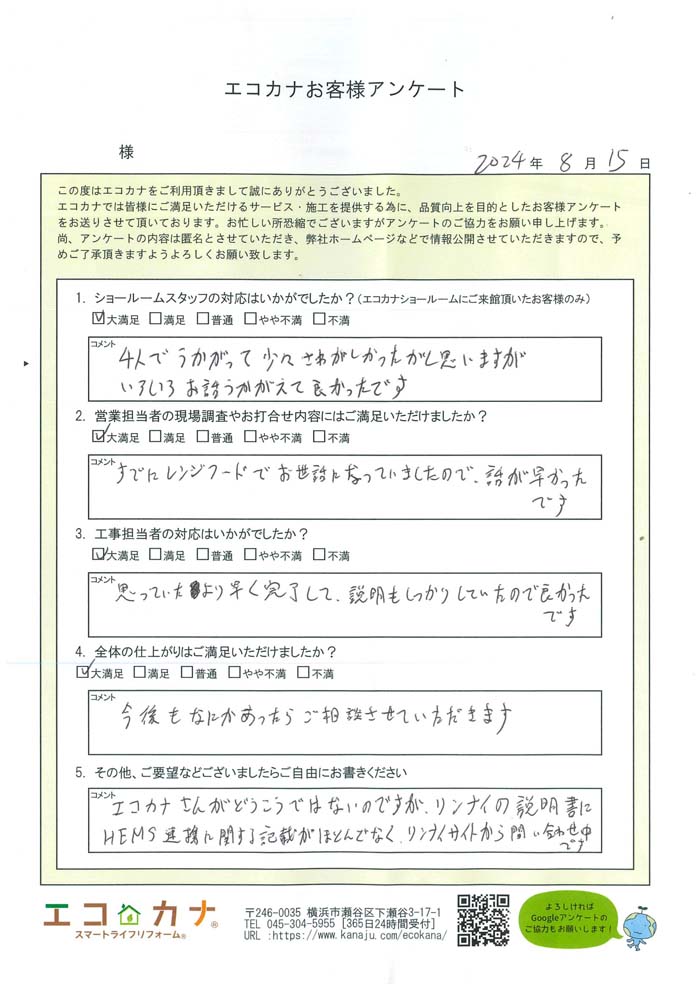 エコカナお客様アンケート
様
2024年 8月 15日
この度はエコカナをご利用頂きまして誠にありがとうございました。
エコカナでは皆様にご満足いただけるサービス・施工を提供する為に、品質向上を目的としたお客様アンケート
をお送りさせて頂いております。お忙しい所恐縮でございますがアンケートのご協力をお願い申し上げます。
尚、アンケートの内容は匿名とさせていただき、弊社ホームページなどで情報公開させていただきますので、予
めご了承頂きますようよろしくお願い致します。
1. ショールームスタッフの対応はいかがでしたか？(エコカナショールームにご来館頂いたお客様のみ)
☑大満足 □満足 □普通 □やや不満 □不満
コメント
4人でうかがって少々さわがしかったがと思いますが
いろいろお話うかがえて良かったです
2. 営業担当者の現場調査やお打合せ内容にはご満足いただけましたか？
☑大満足 □満足 □普通 □やや不満 □不満
コメント
すでにレンジフードでお世話になっていましたので、話が早かった
です
3. 工事担当者の対応はいかがでしたか？
☑大満足 □満足 □普通 □やや不満 □不満
コメント
思っていたより早く完了して、説明もしっかりしていたので良かった
です
4. 全体の仕上がりはご満足いただけましたか？
☑大満足 □満足 □普通 □やや不満 □不満
コメント
今後もなにかあったらご相談させていただきます
5. その他、ご要望などございましたらご自由にお書きください
コメント
エコカナさんがどうこうではないのですが、リンナイの説明書に
HEMS連携に関する記載がほとんどなく、リンナイサイトから問い合わせ中
です
エコカナ®
スマートライフリフォーム®
〒246-0035 横浜市瀬谷区下瀬谷3-17-1
TEL 045-304-5955 [365日24時間受付]
URL :https://www.kanaju.com/ecokana/
よろしければ
Googleアンケートの
ご協力もお願いします！